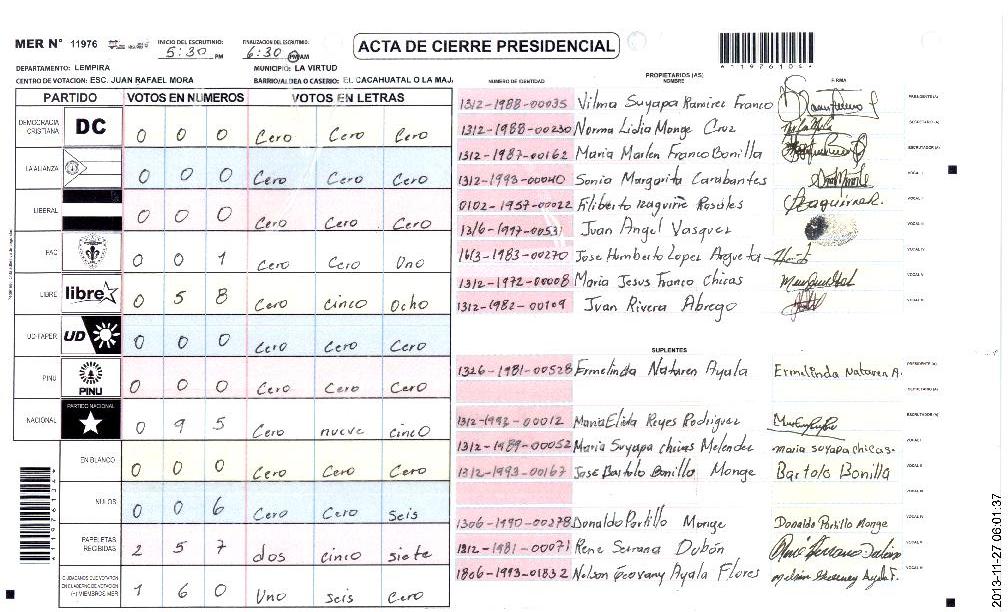 MER N° 11976 INICIO DEL ESCRUTINIO: 5:30 PM FINALIZACION DEL ESCRUTINIO: 6:30 PM/AM
ACTA DE CIERRE PRESIDENCIAL
DEPARTAMENTO: LEMPIRA MUNICIPIO: LA VIRTUD
CENTRO DE VOTACION: ESC. JUAN RAFAEL MORA BARRIO/ALDEA O CASERIO: EL CACAHUATAL O LA MAJ
PARTIDO VOTOS EN NUMEROS VOTOS EN LETRAS
DEMOCRACIA CRISTIANA DC 0 0 0 Cero Cero Cero
LA ALIANZA 0 0 0 Cero Cero Cero
LIBERAL 0 0 0 Cero Cero Cero
PAC 0 0 1 Cero Cero Uno
LIBRE libre 0 5 8 Cero cinco Ocho
UD-FAPER UD 0 0 0 Cero Cero Cero
PINU PINU 0 0 0 Cero Cero Cero
NACIONAL PARTIDO NACIONAL 0 9 5 Cero nueve cinco
EN BLANCO 0 0 0 Cero Cero Cero
NULOS 0 0 6 Cero Cero seis
PAPELETAS RECIBIDAS 2 5 7 dos cinco siete
CIUDADANOS QUE VOTARON EN CUADERNO DE VOTACION (+) MIEMBROS MER 1 6 0 Uno seis Cero
NUMERO DE IDENTIDAD PROPIETARIOS (AS) NOMBRE FIRMA
1312-1988-00035 Vilma Suyapa Ramirez Franco PRESIDENTE (A)
1312-1988-00230 Norma Lidia Monge Cruz SECRETARIO (A)
1312-1987-00162 Maria Marlen Franco Bonilla ESCRUTADOR (A)
1312-1993-00040 Sonia Margarita Carabantes VOCAL I
0102-1957-00022 Filiberto Izaguirre Rosales VOCAL II
Juan Angel Vasquez
1613-1983-00270 Jose Humberto Lopez Argueta VOCAL IV
1312-1972-00008 Maria Jesus Franco Chicas VOCAL V
1312-1982-00109 Juan Rivera Abrego
SUPLENTES
1326-1981-00528 Ermelinda Nataren Ayala Ermelinda Nataren A. PRESIDENTE (A)
SECRETARIO (A)
1312-1993-00012 Maria Elida Reyes Rodriguez ESCRUTADOR (A)
1312-1989-00052 Maria Suyapa chicas Melendez maria suyapa chicas. VOCAL I
1312-1993-00167 Jose Bartolo Bonilla Monge Bartolo Bonilla VOCAL II
1306-1990-00278 Donaldo Portillo Monge Donaldo Portillo Monge
1312-1981-00071 Rene Serrano Dubón
1806-1993-01832 Nelson Geovany Ayala Flores
2013-11-27 06:01:37